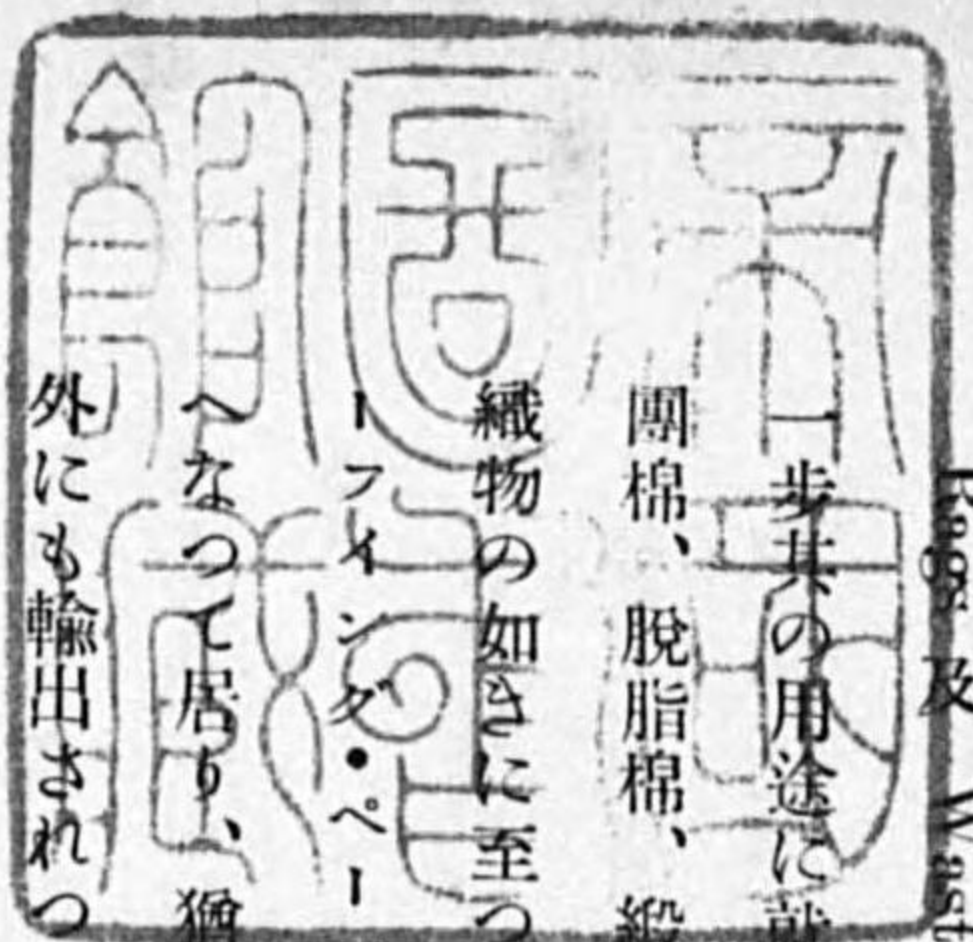 Rags 及 Wast
一步其の用途に就
團棉、脫脂棉、緞
織物の如きに至つ
ーフイング・ペー
へなつて居り、猶
外にも輸出されつ